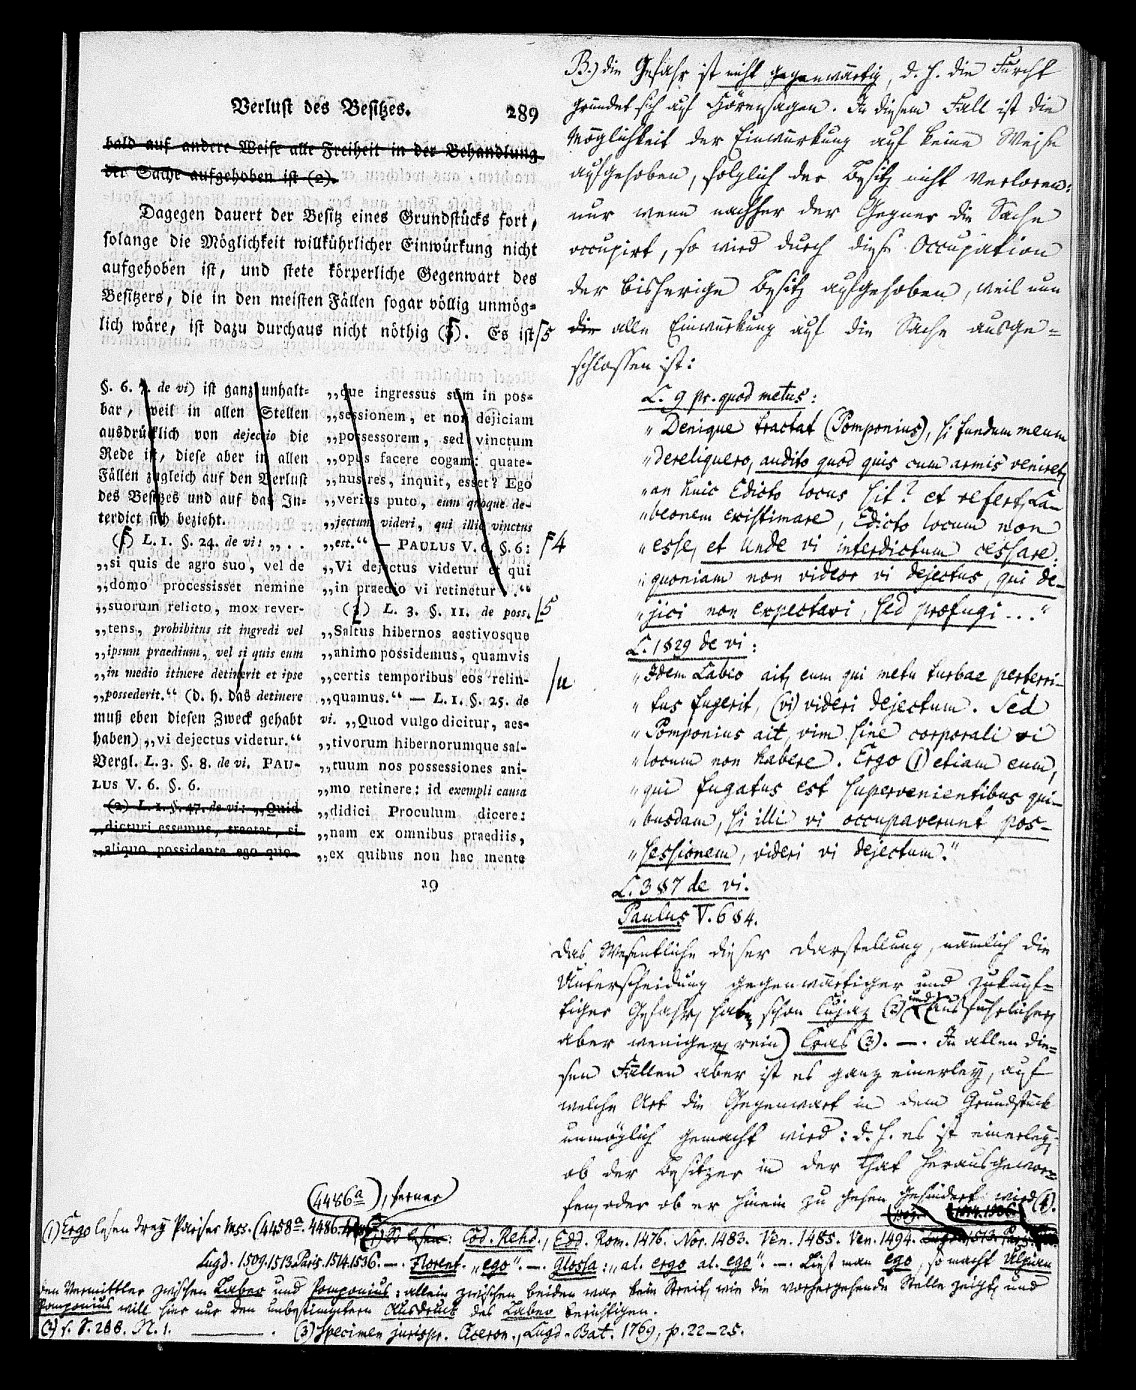 Verlust des Besitzes. 289
bald auf andere Weise alle Freiheit in der Behandlung
der Sache aufgehoben ist (2).
Dagegen dauert der Besitz eines Grundstücks fort,
solange die Möglichkeit willkührlicher Einwürkung nicht
aufgehoben ist, und stete körperliche Gegenwart des
Besitzers, die in den meisten Fällen sogar völlig unmög-
lich wäre, ist dazu durchaus nicht nöthig ( ). Es ist /5
§. 6. de vi) ist ganz unhalt-
bar, weil in allen Stellen
ausdrücklich von dejectio die
Rede ist, diese aber in allen
Fällen zugleich auf den Verlust
des Besitzes und auf das In-
terdict sich bezieht.
( ) L. 1. §. 24. de vi: „ . .
„si quis de agro suo, vel de
„domo processisset nemine
„suorum relicto, mox rever-
„tens, prohibitus sit ingredi vel
„ipsum praedium, vel si quis eum
„in medio itinere detinerit et ipse
„possederit.“ (d. h. das detinere
muß eben diesen Zweck gehabt
haben) „vi dejectus videtur.“
Vergl. L. 3. §. 8. de vi. PAU-
LUS V. 6. §. 6.
(2) L. 1. §. 47. de vi: „Quid
„dicturi essemus, tractat, si
„aliquo possidente ego quo-
„que ingressus sum in pos-
„sessionem, et non dejiciam
„possessorem, sed vinctum
„opus facere cogam: quate-
„nus res, inquit, esset? Ego
„verius puto, eum quoque de-
„jectum videri, qui illic vinctus
„est.“ — PAULUS V. 6. §. 6:
„Vi dejectus videtur et qui
„in praedio vi retinetur . .“
( ) L. 3. §. 11. de poss. /5
„Saltus hibernos aestivosque
„animo possidemus, quamvis
„certis temporibus eos relin-
„quamus.“ — L. 1. §. 25. de /u
vi. „Quod vulgo dicitur, aes-
„tivorum hibernorumque sal-
„tuum nos possessiones ani-
„mo retinere: id exempli causa
„didici Proculum dicere:
„nam ex omnibus praediis,
„ex quibus non hac mente
19
B.) die Gefahr ist nicht gegenwärtig, d. h. die Furcht
gründet sich auf Hörensagen. In diesem Fall ist die
Möglichkeit der Einwürkung auf keine Weise
aufgehoben, folglich der Besitz nicht verloren:
nur wenn nachher der Gegner die Sache
occupirt, so wird durch diese Occupation
der bisherige Besitz aufgehoben, weil nun
die alle Einwürkung auf die Sache ausge-
schlossen ist:
L. 9 pr. quod metus:
„Denique tractat (Pomponius), si fundum meum
„dereliquero, audito quod quis cum armis veniret,
„an huic Edicto locus sit? et refert, La-
„beonem existimare, Edicto locum non
„esse, et Unde vi interdictum cessare:
„quoniam non videor vi dejectus, qui de-
„jici non expectavi, sed profugi ..."
L. 1 §29 de vi:
„Idem Labeo ait, eum qui metu turbae perterri-
„tus fugerit, (vi) videri dejectum. Sed
„Pomponius ait, vim sine corporali vi
„locum non habere. Ergo (1) etiam eum,
„qui fugatus est supervenientibus qui-
„busdam, si illi vi occupaverunt pos-
„sessionem, videri vi dejectum."
L. 3 §7 de vi.
Paulus V. 6 §4.
Das Wesentliche dieser Darstellung, nämlich die
Unterscheidung gegenwärtiger und zukünf-
tiger Gefahr, haben schon Cujaz (2) und (ausführlicher,
aber weniger rein) Cras (3). —. In allen die-
sen Fällen aber ist es ganz einerley, auf
welche Art die Gegenwart in dem Grundstück
unmöglich gemacht wird: d. h. es ist einerley,
ob der Besitzer in der That herausgewor-
fen, oder ob er hinein zu gehen gehindert wird (4).
(4486a), ferner
(1) Ergo lesen drey Pariser Mss. (4458a. 4486. Cod. Rehd., Edd. Rom. 1476. Nor. 1483. Ven. 1485. Ven. 1494.
Lugd. 1509. 1513. Paris. 1514. 1536. —. Florent. „ego". —. Glossa: „al. ergo al. ego". —. Liest man ego, so macht Ulpian
den Vermittler zwischen Labeo und Pomponius: allein zwischen beiden war kein Streit, wie die vorhergehende Stelle zeigt, und
Pomponius will hier nur den unbestimmtern Ausdruck des Labeo berichtigen.
(2) s. S. 288. N. 1. ———. (3) Specimen jurispr. Ciceron., Lugd. Bat. 1769, p. 22–25.